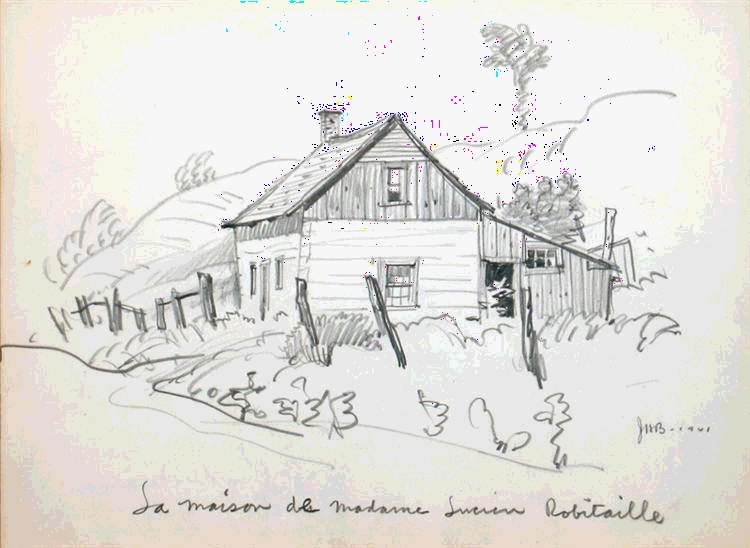 JHB-1941
La maison de madame Lucien Robitaille